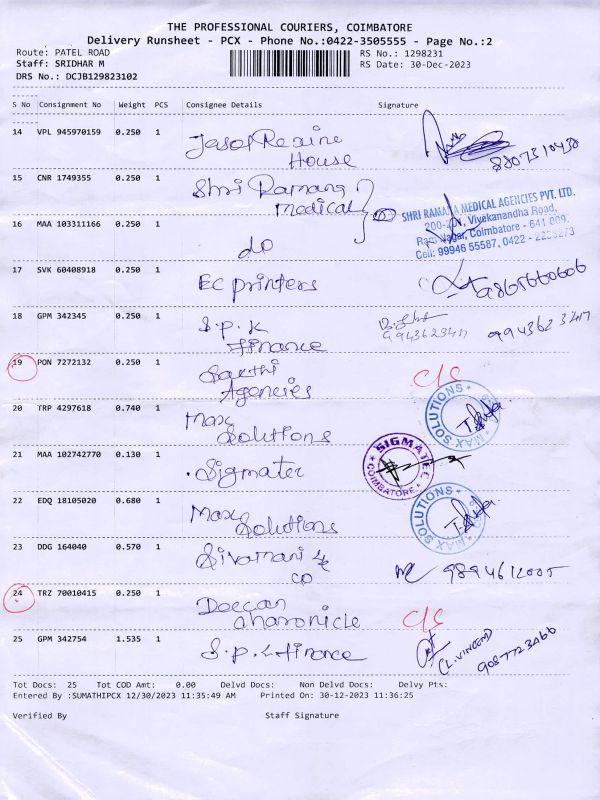 THE PROFESSIONAL COURIERS, COIMBATORE
Delivery Runsheet - PCX - Phone No.:0422-3505555 - Page No.:2
Route: PATEL ROAD
Staff: SRIDHAR M
DRS No.: DCJB129823102
RS No.: 1298231
RS Date: 30-Dec-2023
S No Consignment No Weight PCS Consignee Details Signature
14 VPL 945970159 0.250 1 Jasol Rexine
House
8807310438
15 CNR 1749355 0.250 1 Shri Ramana
Medical
SHRI RAMANA MEDICAL AGENCIES PVT. LTD.
200-201, Vivekanandha Road,
Ram Nagar, Coimbatore - 641 009.
Cell: 99946 55587, 0422 -
16 MAA 103311166 0.250 1 do
17 SVK 60408918 0.250 1 EC printers
9865660606
18 GPM 342345 0.250 1 S.p.k
finance
9943623417 9943623417
19 PON 7272132 0.250 1 Sakthi
Agencies
C/S
20 TRP 4297618 0.740 1 Max
Solutions
MAX SOLUTIONS
21 MAA 102742770 0.130 1 Sigmatec
SIGMATEC
COIMBATORE
22 EDQ 18105020 0.680 1 Max
Solutions
MAX SOLUTIONS
23 DDG 164040 0.570 1 Sivamani &
co
9894612005
24 TRZ 70010415 0.250 1 Deccan
charonicle
C/S
25 GPM 342754 1.535 1 S.p.k finance
CL.VINCEND
Tot Docs: 25 Tot COD Amt: 0.00 Delvd Docs: Non Delvd Docs: Delvy Pts:
Entered By :SUMATHIPCX 12/30/2023 11:35:49 AM Printed On: 30-12-2023 11:36:25
Verified By Staff Signature